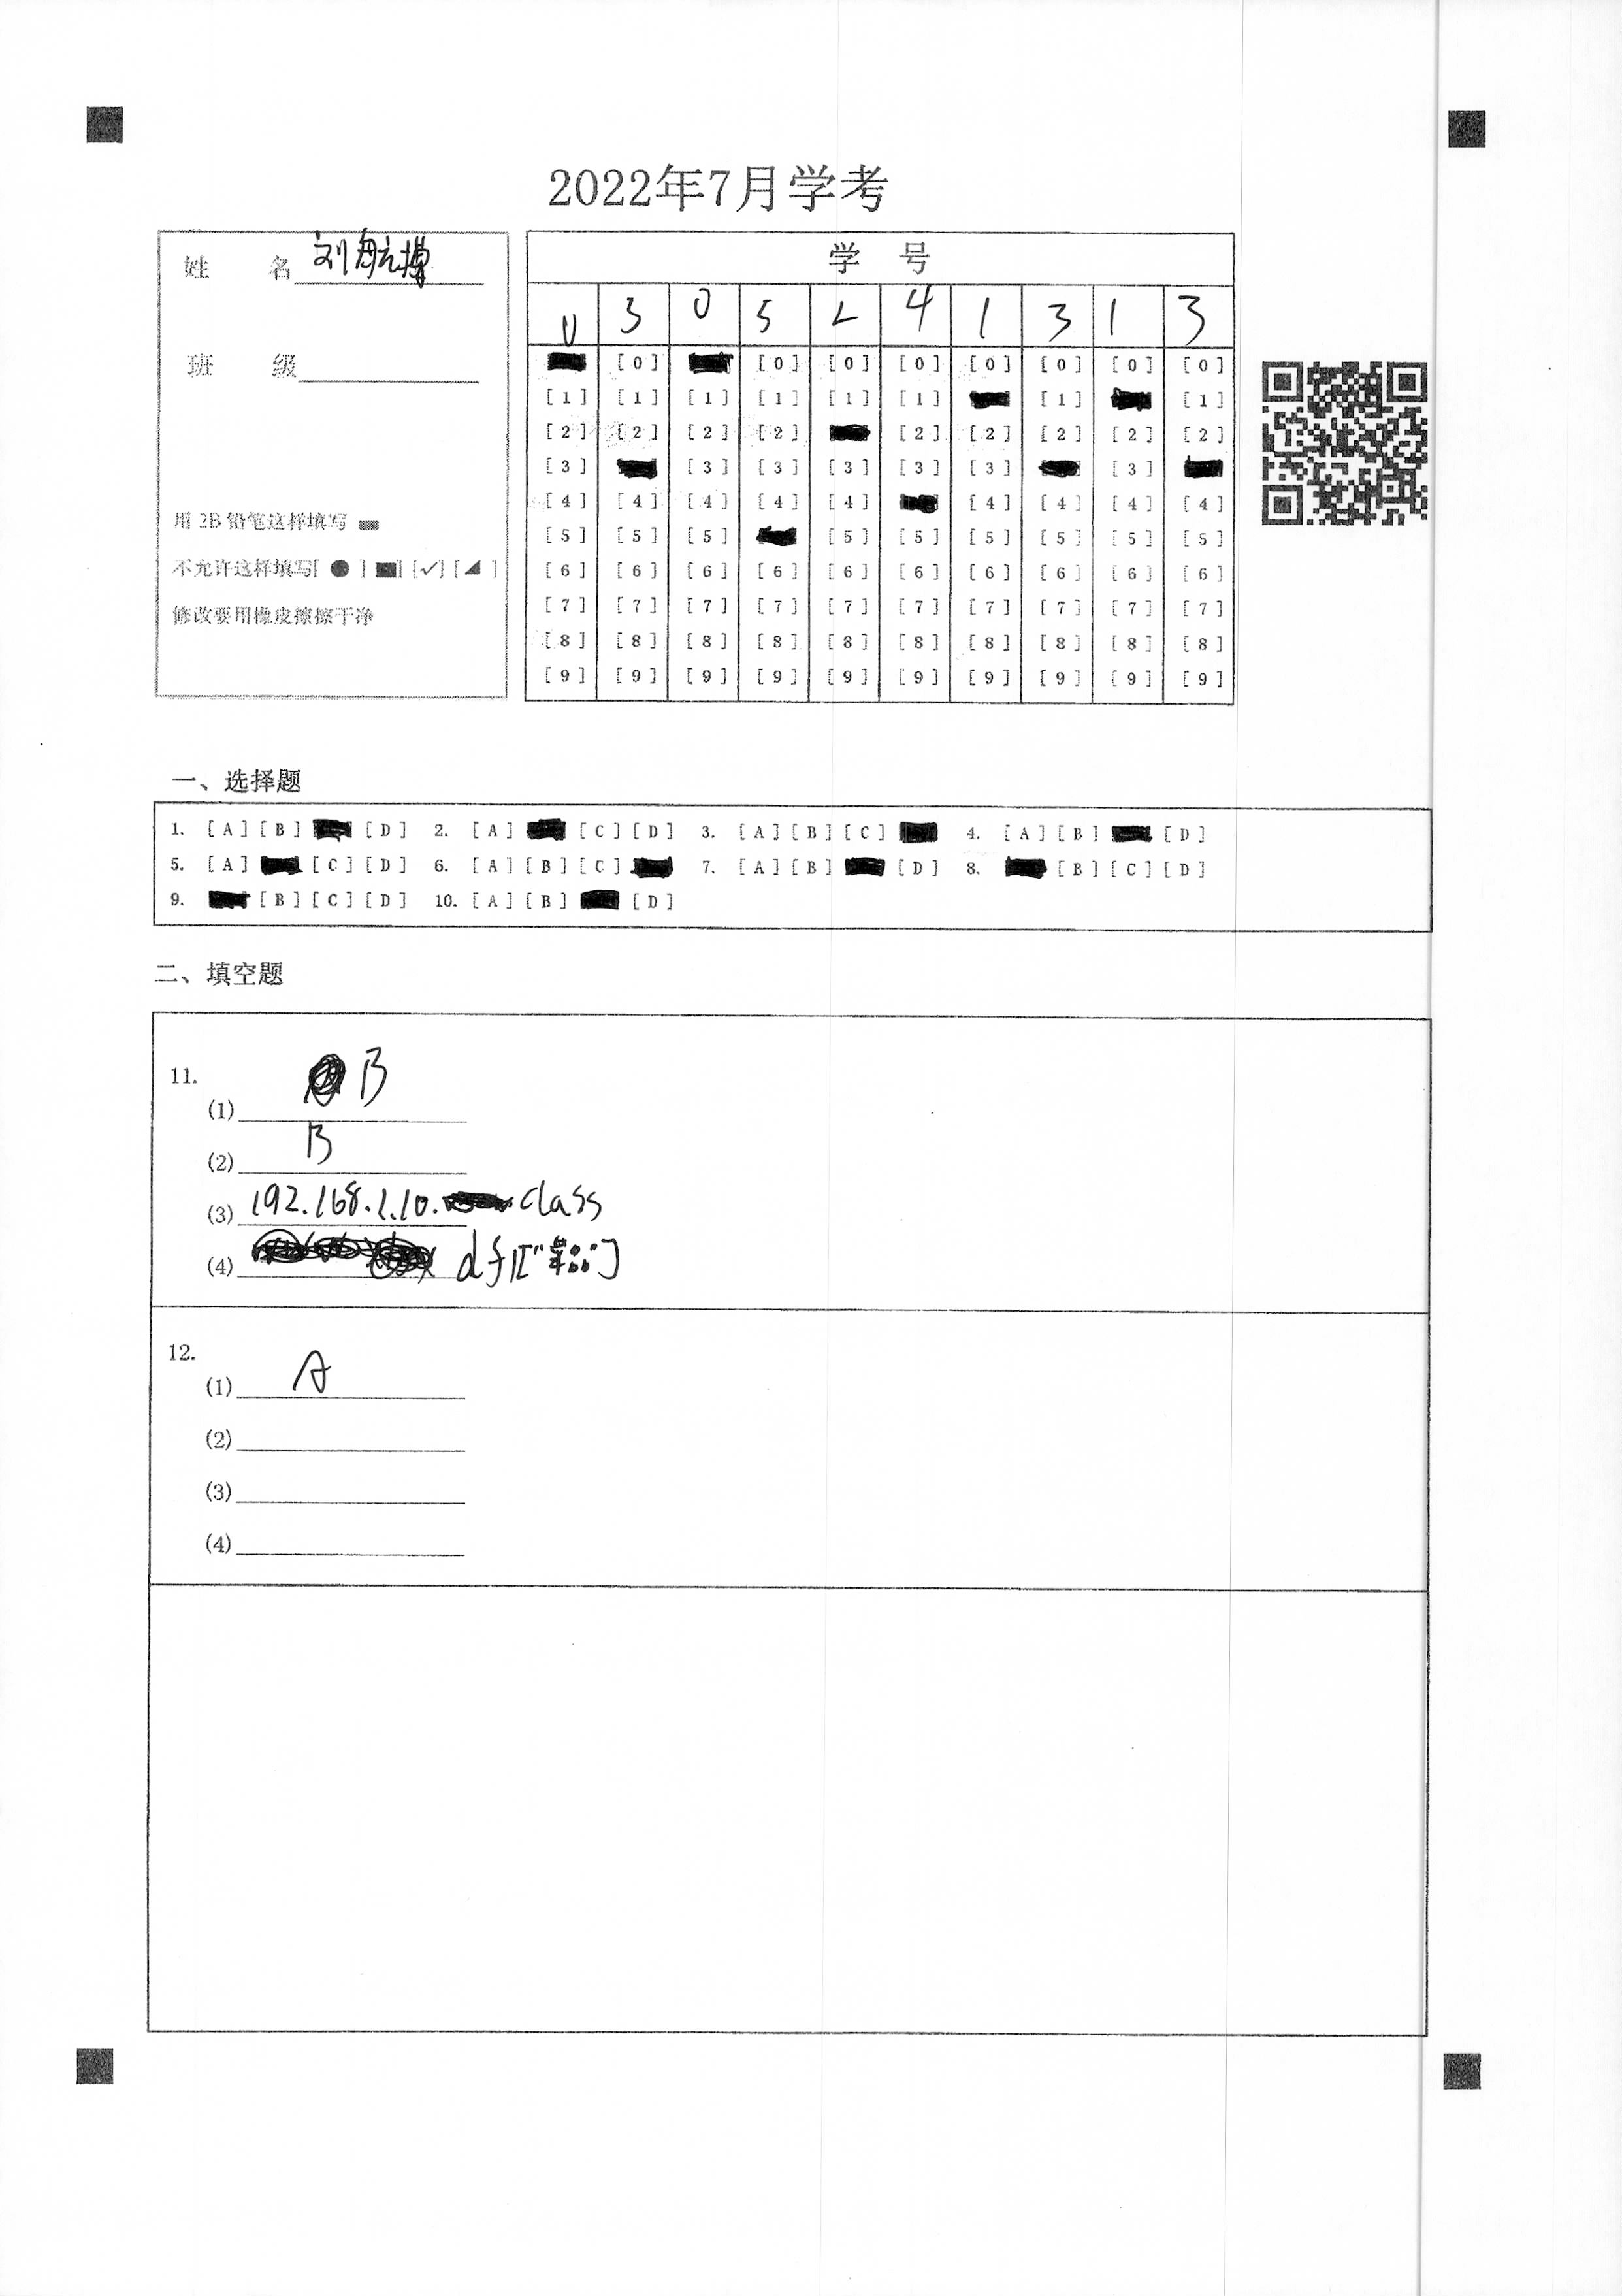 2022年7月学考
姓 名 刘航博
班 级
用 2B 铅笔这样填写
不允许这样填写[ ● ] [■] [✓] [◢ ]
修改要用橡皮擦擦干净
学 号
0 3 0 5 2 4 1 3 1 3
[0] [0] [0] [0] [0] [0] [0] [0]
[1] [1] [1] [1] [1] [1] [1] [1]
[2] [2] [2] [2] [2] [2] [2] [2] [2]
[3] [3] [3] [3] [3] [3] [3]
[4] [4] [4] [4] [4] [4] [4] [4] [4]
[5] [5] [5] [5] [5] [5] [5] [5] [5]
[6] [6] [6] [6] [6] [6] [6] [6] [6] [6]
[7] [7] [7] [7] [7] [7] [7] [7] [7] [7]
[8] [8] [8] [8] [8] [8] [8] [8] [8] [8]
[9] [9] [9] [9] [9] [9] [9] [9] [9] [9]
一、选择题
1. [A] [B] [D] 2. [A] [C] [D] 3. [A] [B] [C] 4. [A] [B] [D]
5. [A] [C] [D] 6. [A] [B] [C] 7. [A] [B] [D] 8. [B] [C] [D]
9. [B] [C] [D] 10. [A] [B] [D]
二、填空题
11.
(1) B
(2) B
(3) 192.168.1.10. class
(4)
12.
(1) A
(2)
(3)
(4)